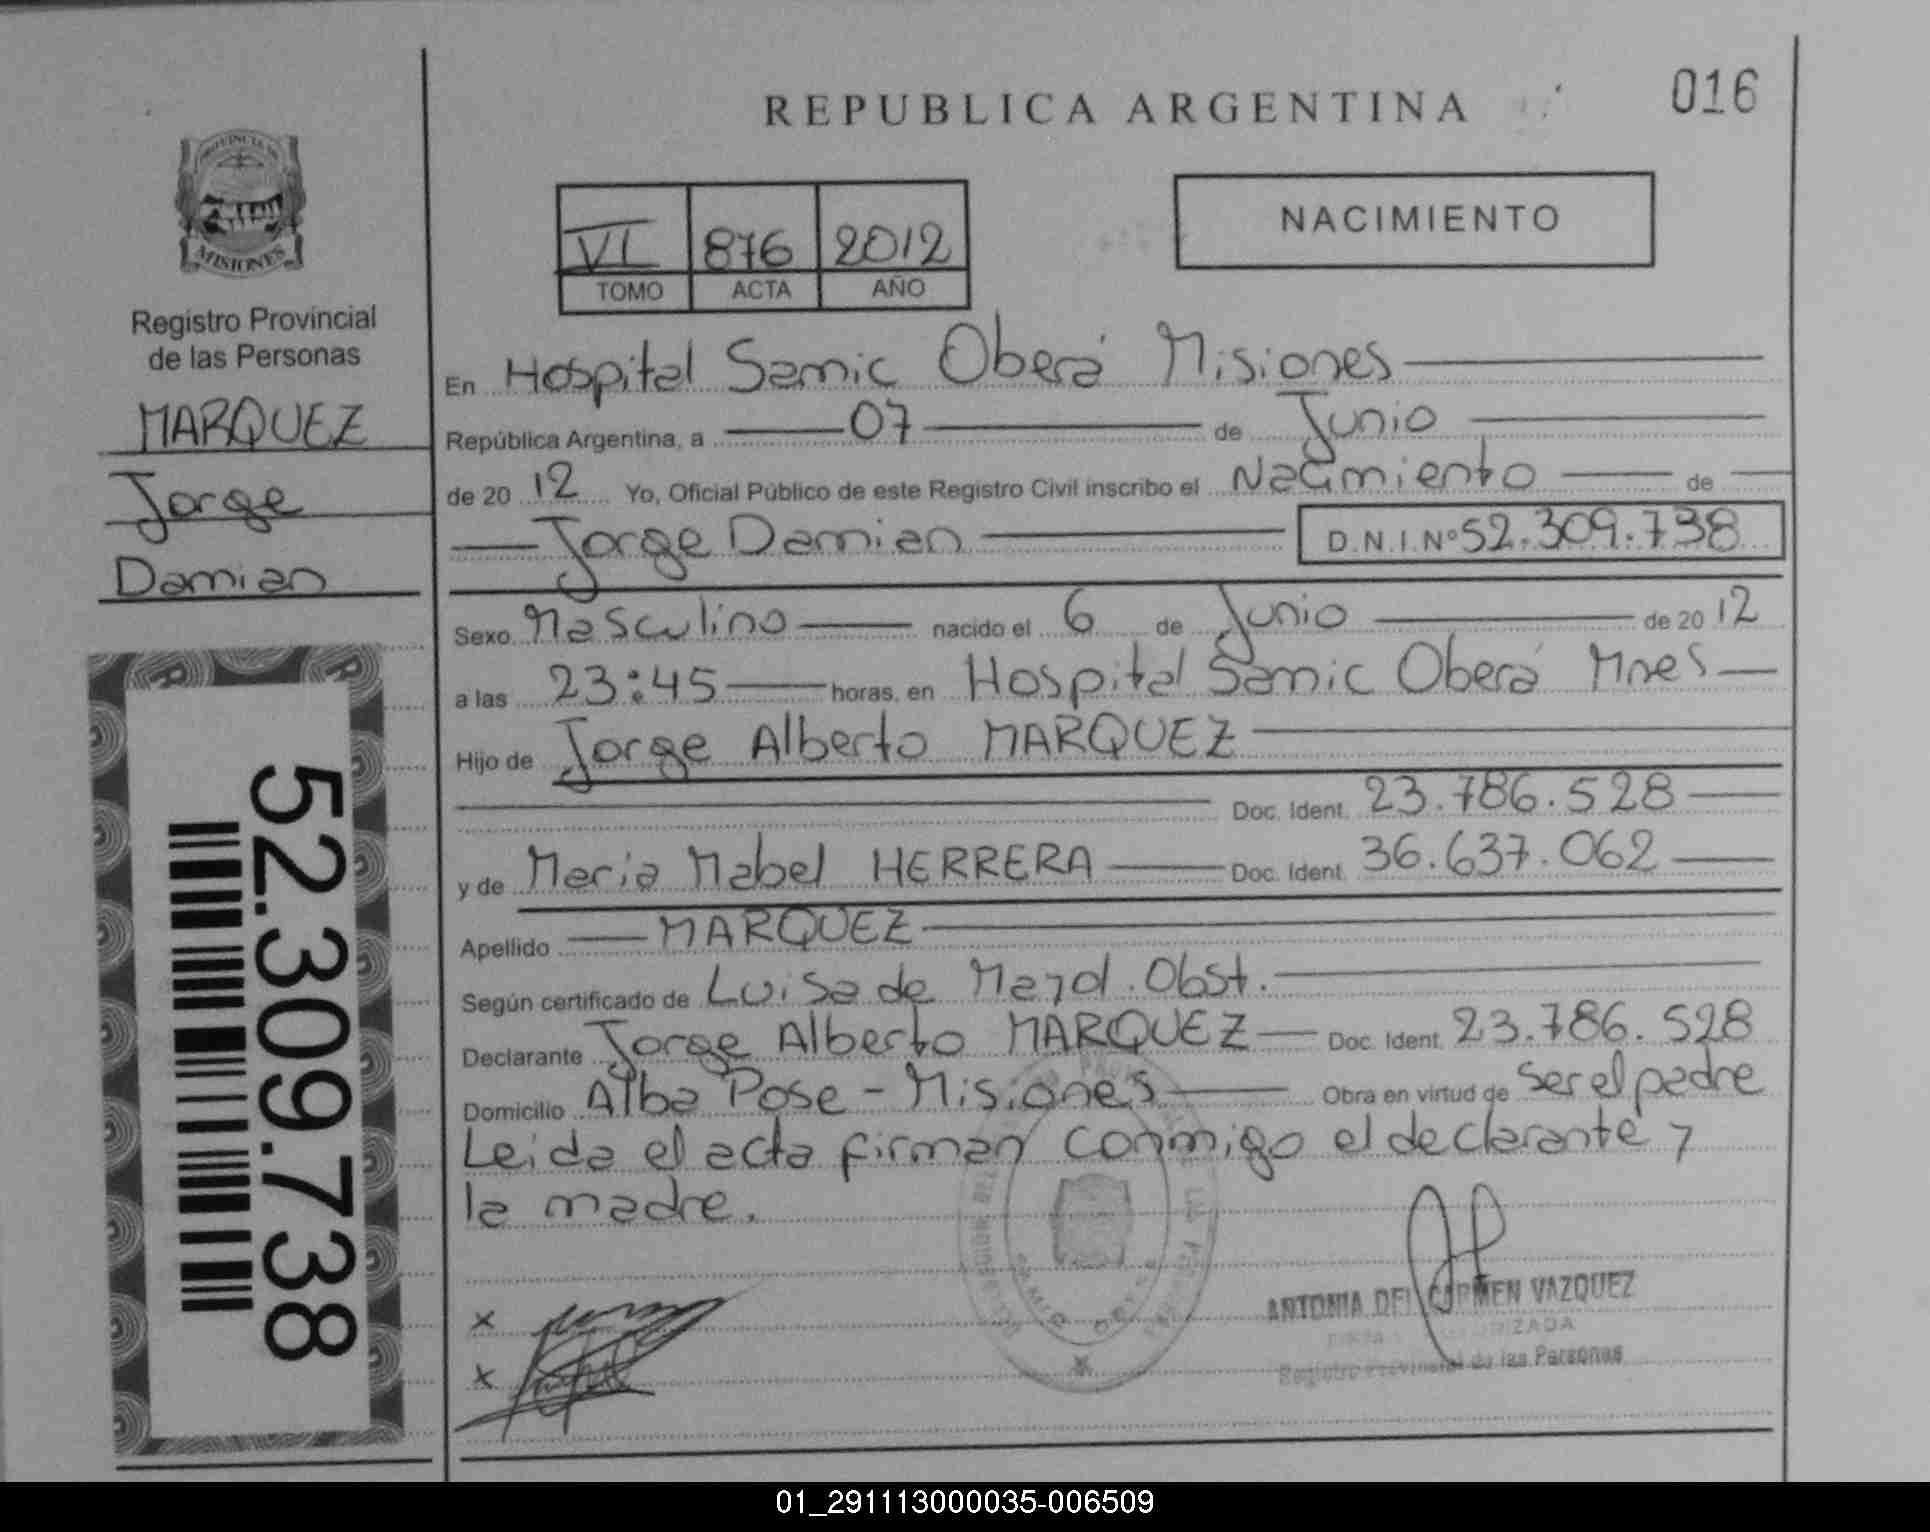 REPUBLICA ARGENTINA
016
PROVINCIA DE
MISIONES
Registro Provincial
de las Personas
MARQUEZ
Jorge
Damian
52.309.738
VI 876 2012
TOMO ACTA AÑO
NACIMIENTO
En Hospital Samic Oberá Misiones
República Argentina, a 07 de Junio
de 20 12 Yo, Oficial Público de este Registro Civil inscribo el Nacimiento de
Jorge Damian D.N.I.Nº 52.309.738
Sexo Masculino nacido el 6 de Junio de 20 12
a las 23:45 horas, en Hospital Samic Oberá Mnes
Hijo de Jorge Alberto MARQUEZ
Doc. Ident. 23.786.528
y de Maria Mabel HERRERA Doc. Ident. 36.637.062
Apellido MARQUEZ
Según certificado de Luisa de Obst.
Declarante Jorge Alberto MARQUEZ Doc. Ident. 23.786.528
Domicilio Alba Pose - Misiones Obra en virtud de ser el padre
Leida el acta firman conmigo el declarante y
la madre.
x
x
ANTONIA DEL CARMEN VAZQUEZ
Registro Provincial de las Personas
01_291113000035-006509